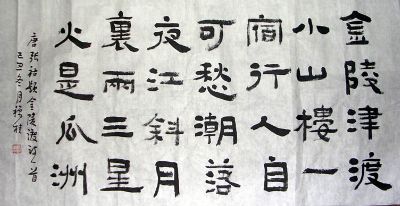 金陵津渡
小山樓一
宿行人自
可愁潮落
夜江斜月
裏兩三星
火是瓜洲
唐張祜題金陵渡詩一首
己丑冬月